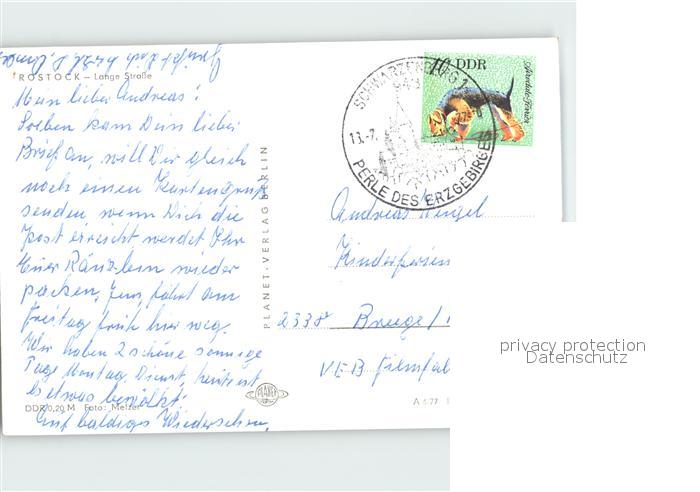 Grüßt Dich herzl. D. Oma
ROSTOCK – Lange Straße
Mein lieber Andreas!
Soeben kam Dein lieber
Brief an, will Dir gleich
noch einen Kartengruß
senden wenn Dich die
Post erreicht werdet Ihr
Euer Ränzlein wieder
packen, fährt am
Freitag früh hier weg.
Wir haben 2 schöne sonnige
Tage Montag, Dienst, heute ist
es etwas bewölkt.
DDR 0,20 M Foto: Melzer
Auf baldiges Wiedersehen,
PLANET-VERLAG BERLIN
PLANET
A 4/77
10 DDR
Airedale-Terrier
SCHWARZENBERG 1
943
13.-7.
PERLE DES ERZGEBIRGES
Andreas
Kinderferien
2338
VEB Filmfa
privacy protection
Datenschutz